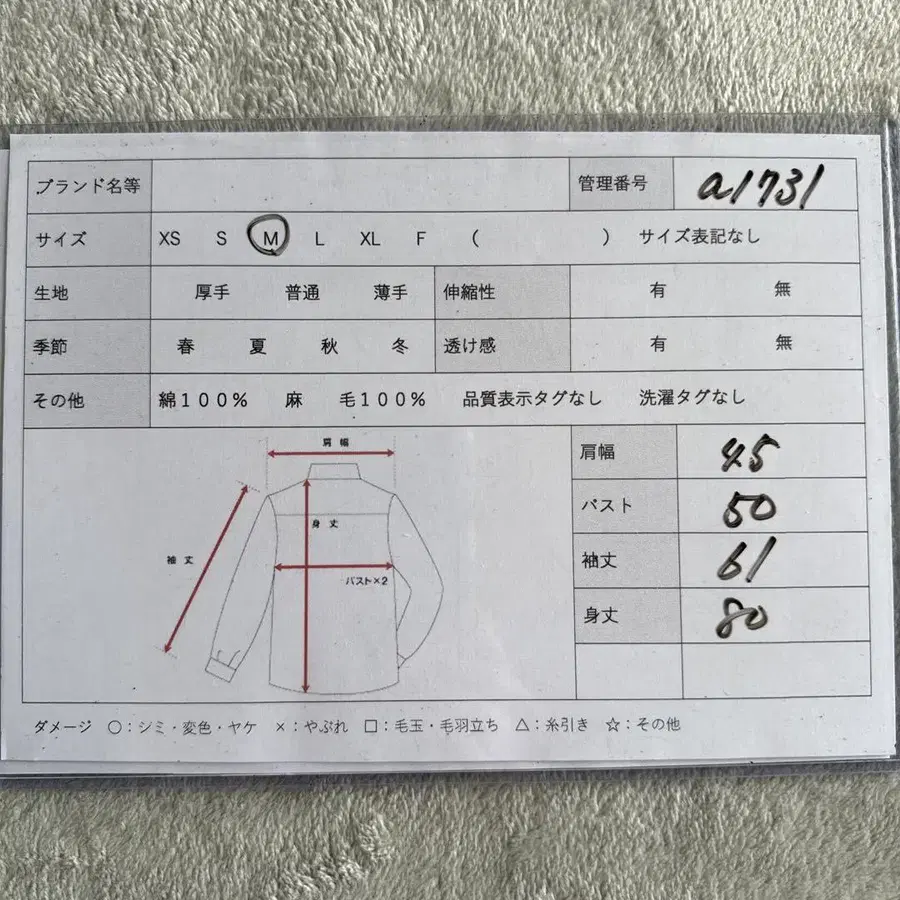 ブランド名等 管理番号 a1731
サイズ XS S M L XL F ( ) サイズ表記なし
生地 厚手 普通 薄手 伸縮性 有 無
季節 春 夏 秋 冬 透け感 有 無
その他 綿100% 麻 毛100% 品質表示タグなし 洗濯タグなし
肩幅
身丈
袖丈
バスト×2
肩幅 45
バスト 50
袖丈 61
身丈 80
ダメージ ○:シミ・変色・ヤケ ×:やぶれ □:毛玉・毛羽立ち △:糸引き ☆:その他